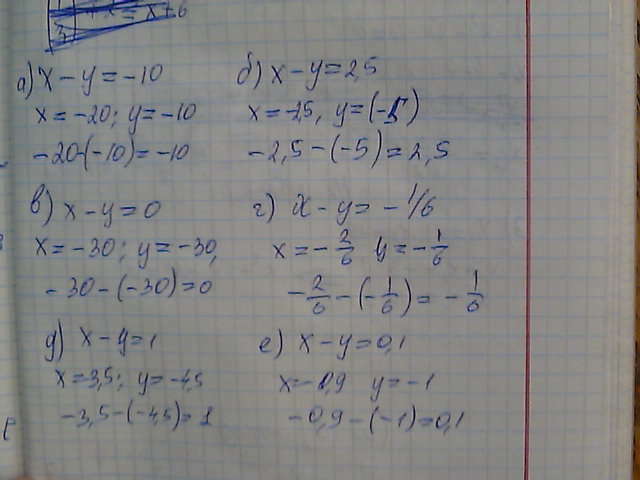 = x + 6
а) x - y = -10
x = -20; y = -10
-20-(-10) = -10
б) x - y = 2,5
x = -2,5, y = (-5)
-2,5 - (-5) = 2,5
в) x - y = 0
x = -30; y = -30,
-30 - (-30) = 0
г) x - y = - 1/6
x = - 2/6 y = - 1/6
- 2/6 - (- 1/6) = - 1/6
д) x - y = 1
x = 3,5; y = -4,5
-3,5 - (-4,5) = 1
е) x - y = 0,1
x = -0,9 y = -1
-0,9 - (-1) = 0,1